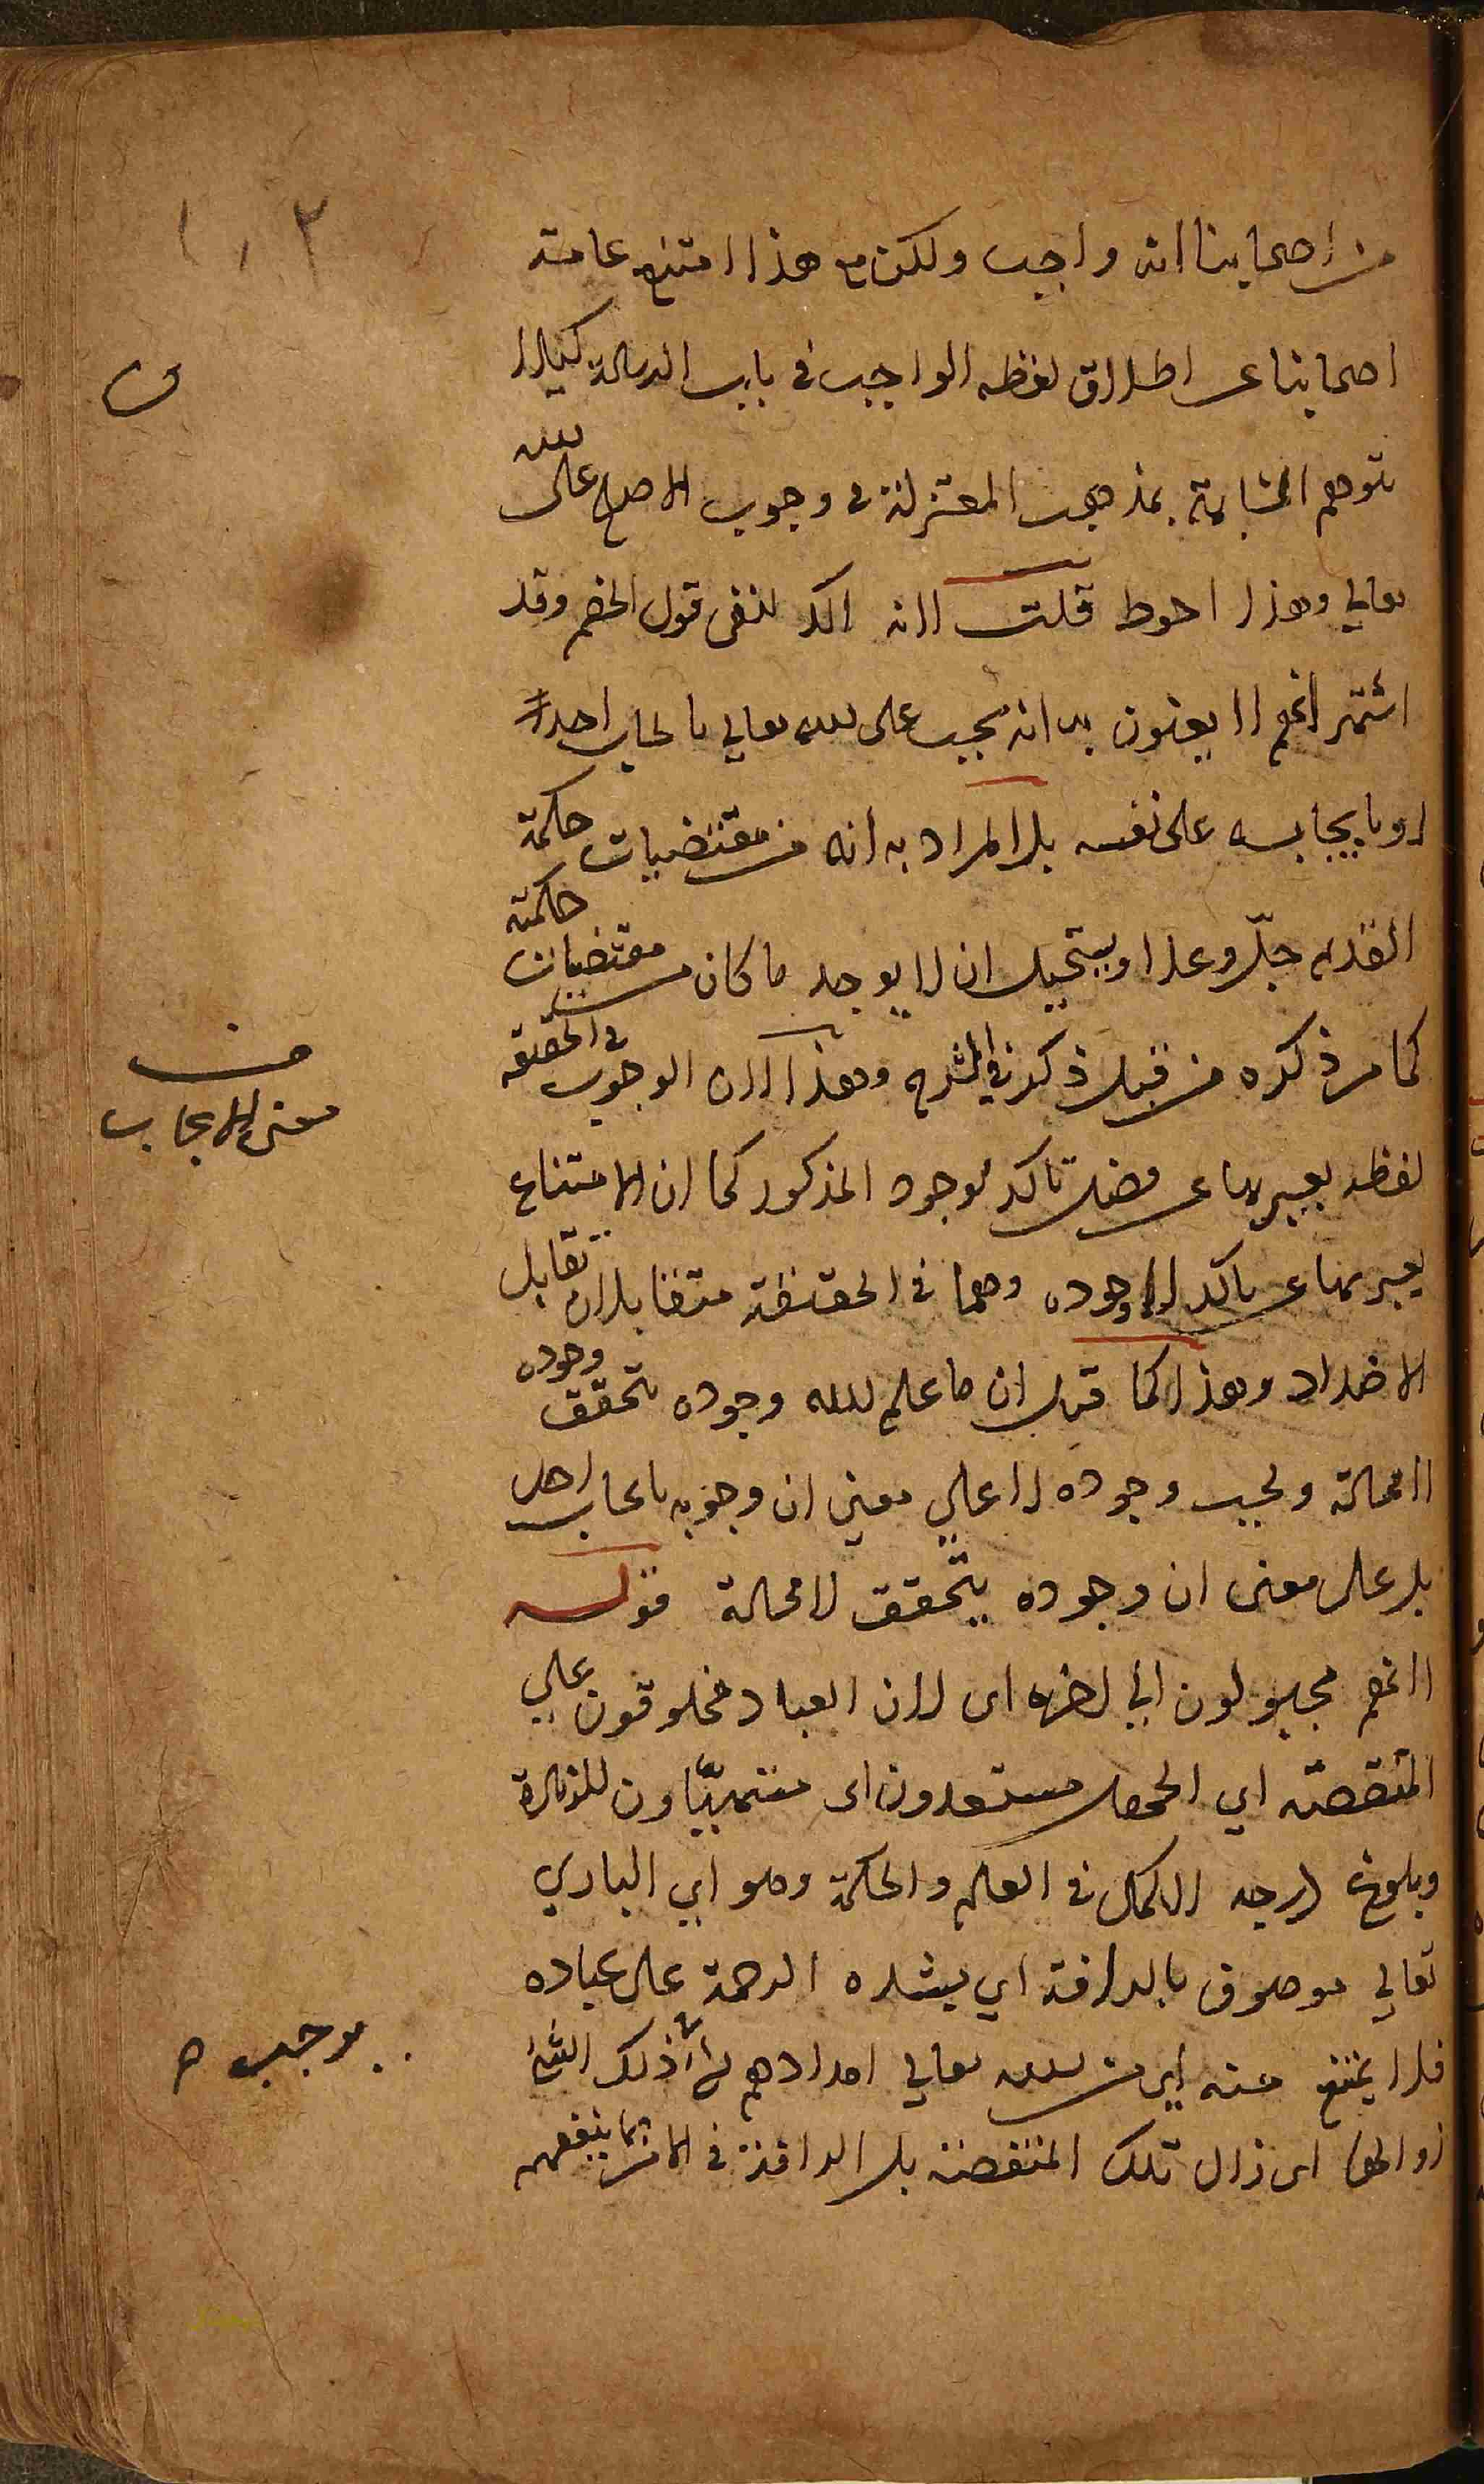 ١٠٢
من اصحابنا انه واجب ولكن مع هذا امتنع عامة
اصحابنا عن اطلاق لفظه الواجب في باب الرسالة كيلا
يتوهم المشابهة بمذهب المعتزلة في وجوب الاصلح على الله
تعالي وهذا احوط قلت لانه اكد لنفى قول الخصم وقد
اشتهر انهم لا يعنون به انه يجب على الله تعالي بايجاب احد
او بايجابه على نفسه بل المراد به انه من مقتضيات حكمة
القديم جل وعلا ويستحيل ان لا يوجد ما كان من مقتضيات حكمته
كما مر ذكره من قبل ذكر في الشرح وهذا لان الوجوب في الحقيقه
لفظه يعبر بها عن فضل تاكد لوجود المذكور كما ان الامتناع
يعبر بها عن تاكد لا وجوده وهما في الحقيقة متقابلان تقابل
الاضداد وهذا كما قيل ان ما علم الله وجوده يتحقق وجوده
لا محالة ويجب وجوده لا علي معني ان وجوبه بايجاب احد
بل على معنى ان وجوده يتحقق لا محالة قوله
لانهم مجبولون الي اخره اى لان العباد مخلوقون علي
المنقصة اي الجهل مستعدون اى متهيّاون للزيادة
وبلوغ درجه الكمال في العلم والحكمة وهو اي الباري
تعالي موصوف بالرافة اي بشده الرحمة على عباده
فلا يمتنع منه اى من الله تعالي امدادهم ذلك الشئ
زوالها اى زال تلك المنقصة بل الرافة في الامر بما ينفعهم
ف
معنى الايجاب
يوجب